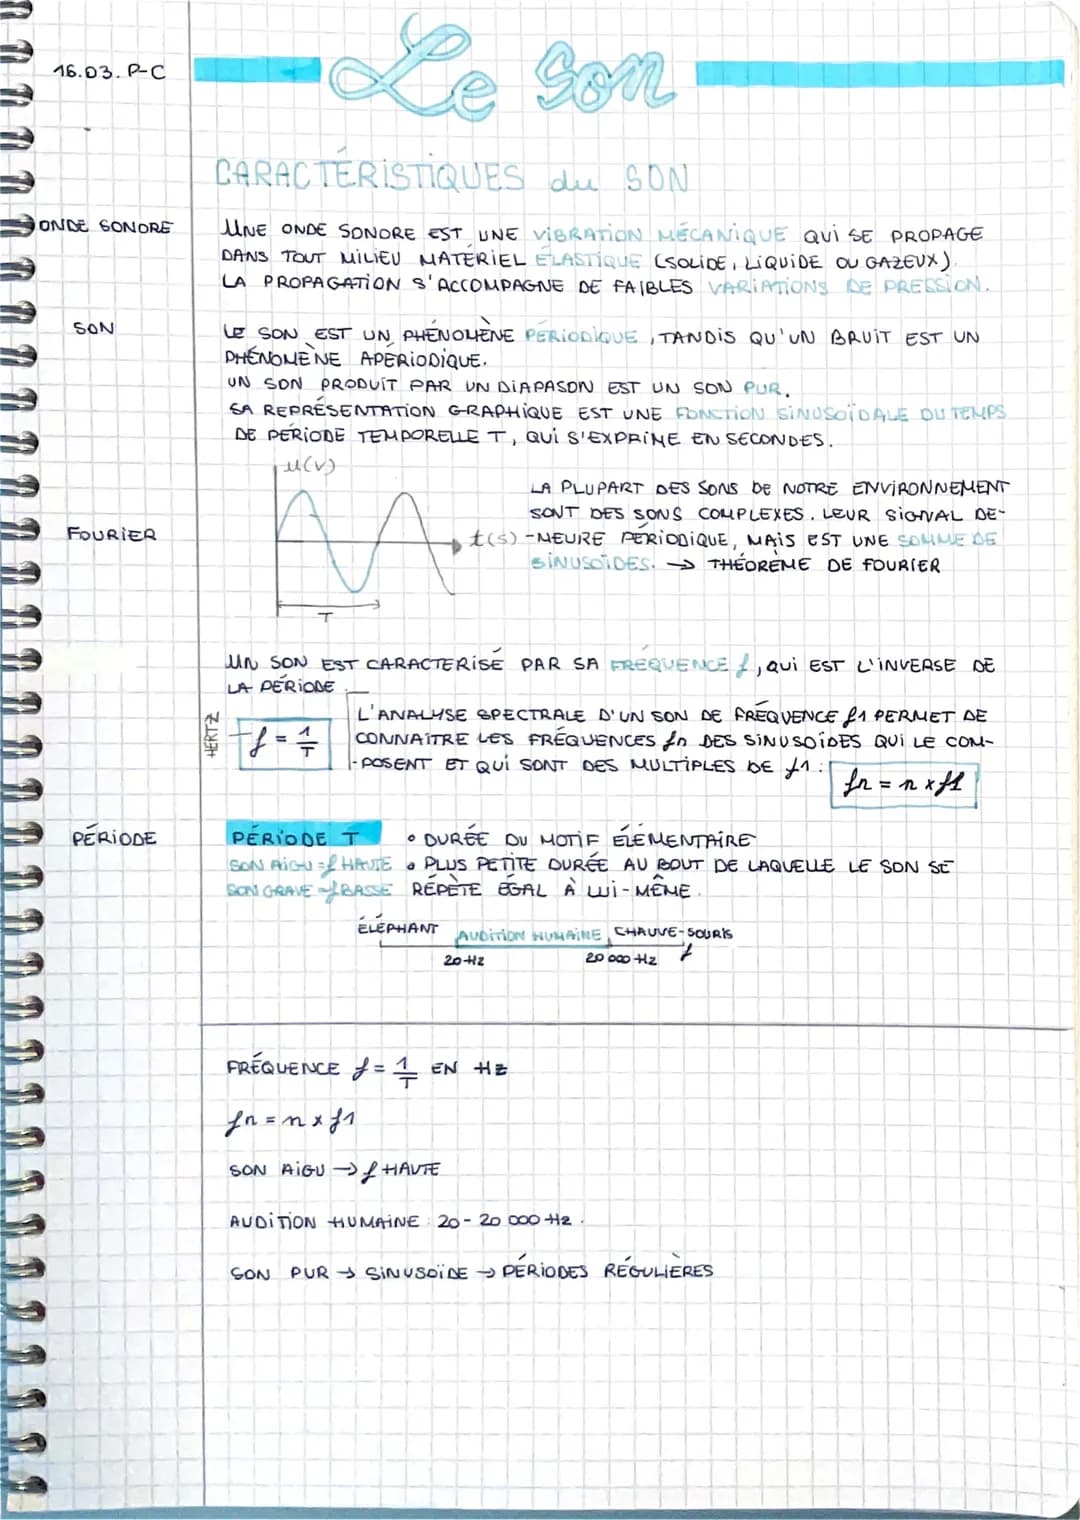 16.03. P-C
Le son
CARACTÉRISTIQUES du SON
ONDE SONORE
UNE ONDE SONORE EST UNE VIBRATION MÉCANIQUE QUI SE PROPAGE
DANS TOUT MILIEU MATÉRIEL ÉLASTIQUE (SOLIDE, LIQUIDE OU GAZEUX).
LA PROPAGATION S'ACCOMPAGNE DE FAIBLES VARIATIONS DE PRESSION.
SON
LE SON EST UN PHÉNOMÈNE PÉRIODIQUE, TANDIS QU'UN BRUIT EST UN
PHÉNOMÈNE APÉRIODIQUE.
UN SON PRODUIT PAR UN DIAPASON EST UN SON PUR.
SA REPRÉSENTATION GRAPHIQUE EST UNE FONCTION SINUSOÏDALE DU TEMPS
DE PÉRIODE TEMPORELLE T, QUI S'EXPRIME EN SECONDES.
u(v)
t(s)
T
FOURIER
LA PLUPART DES SONS DE NOTRE ENVIRONNEMENT
SONT DES SONS COMPLEXES. LEUR SIGNAL DE-
-MEURE PÉRIODIQUE, MAIS EST UNE SOMME DE
SINUSOÏDES. → THÉORÈME DE FOURIER
UN SON EST CARACTERISÉ PAR SA FRÉQUENCE f, QUI EST L'INVERSE DE
LA PÉRIODE
HERTZ
f = 1/T
L'ANALYSE SPECTRALE D'UN SON DE FRÉQUENCE f1 PERMET DE
CONNAITRE LES FRÉQUENCES fn DES SINUSOÏDES QUI LE COM-
-POSENT ET QUI SONT DES MULTIPLES DE f1 :
fn = n x f1
PÉRIODE
PÉRIODE T • DURÉE DU MOTIF ÉLÉMENTAIRE
SON AIGU = f HAUTE • PLUS PETITE DURÉE AU BOUT DE LAQUELLE LE SON SE
SON GRAVE = f BASSE RÉPÈTE ÉGAL À LUI-MÊME.
ÉLÉPHANT AUDITION HUMAINE CHAUVE-SOURIS
20 HZ 20 000 HZ f
FRÉQUENCE f = 1/T EN HZ
fn = n x f1
SON AIGU → f HAUTE
AUDITION HUMAINE : 20 - 20 000 HZ.
SON PUR → SINUSOÏDE → PÉRIODES RÉGULIÈRES